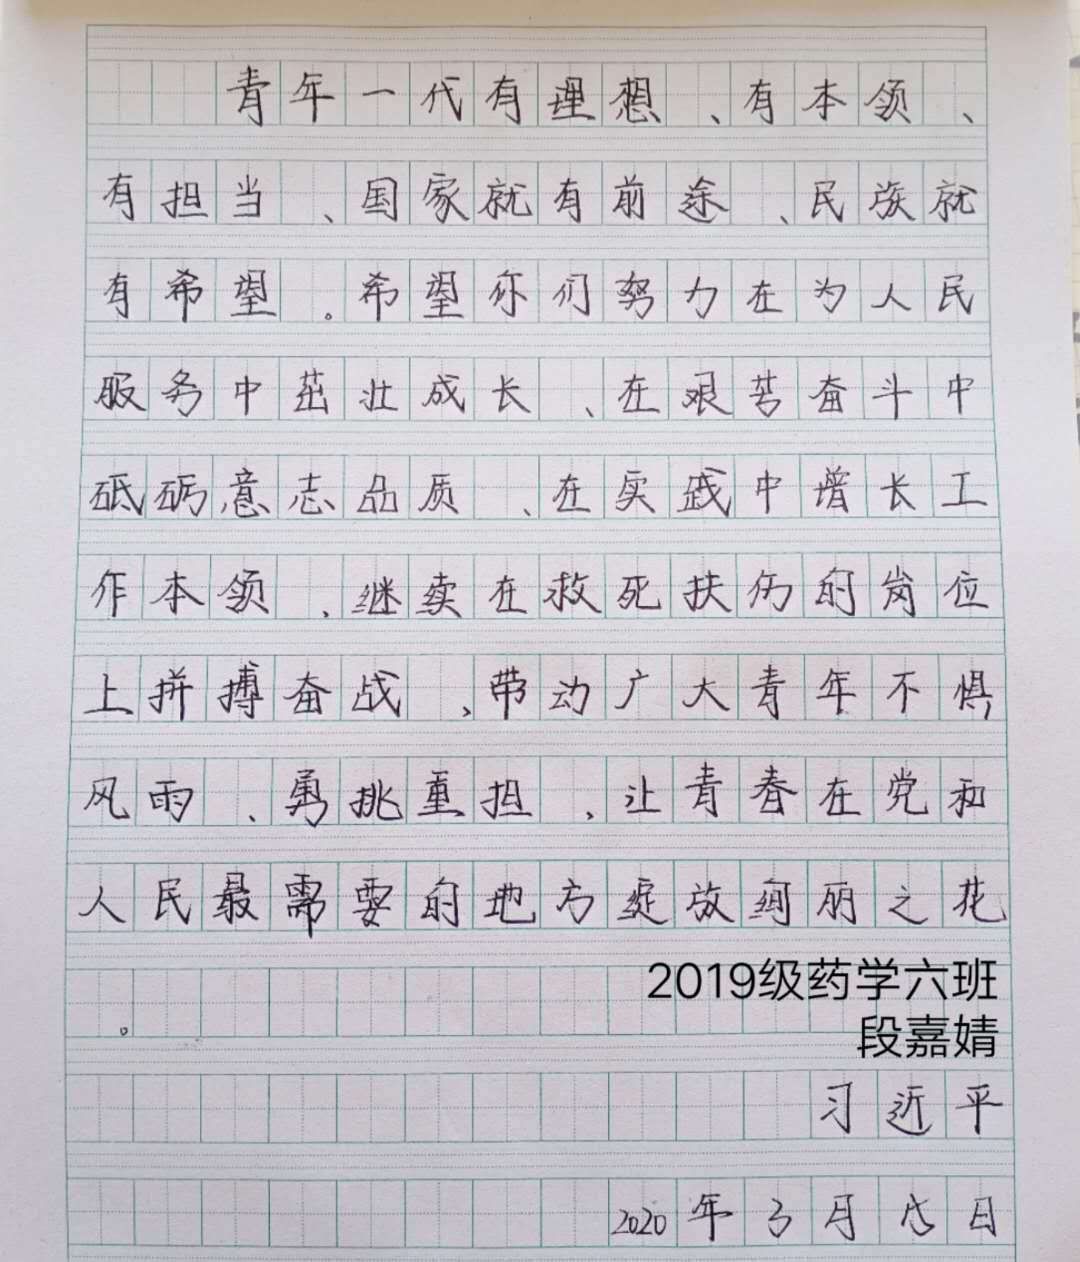 青年一代有理想、有本领、
有担当、国家就有前途、民族就
有希望。希望你们努力在为人民
服务中茁壮成长、在艰苦奋斗中
砥砺意志品质、在实践中增长工
作本领、继续在救死扶伤的岗位
上拼搏奋战、带动广大青年不惧
风雨、勇挑重担、让青春在党和
人民最需要的地方绽放绚丽之花
。
2019级药学六班
段嘉婧
习近平
2020年3月 日